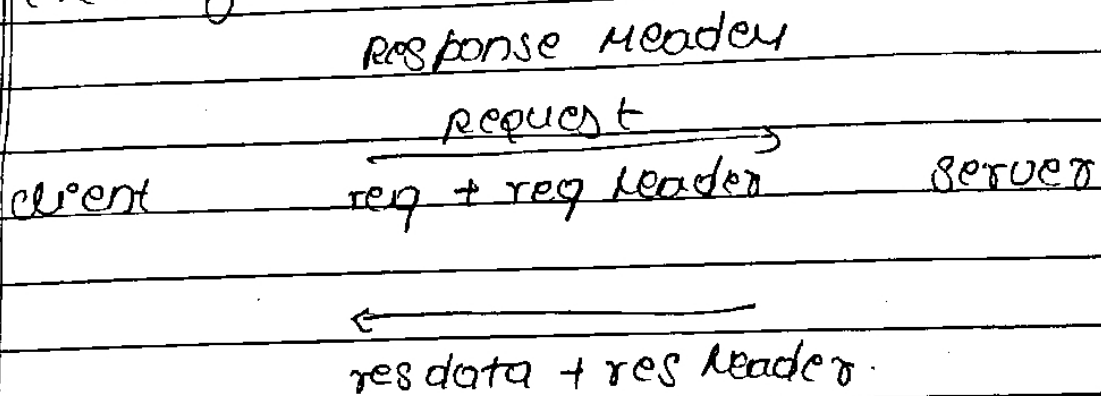 Response Header
Request
client req + req header server
res data + res header.